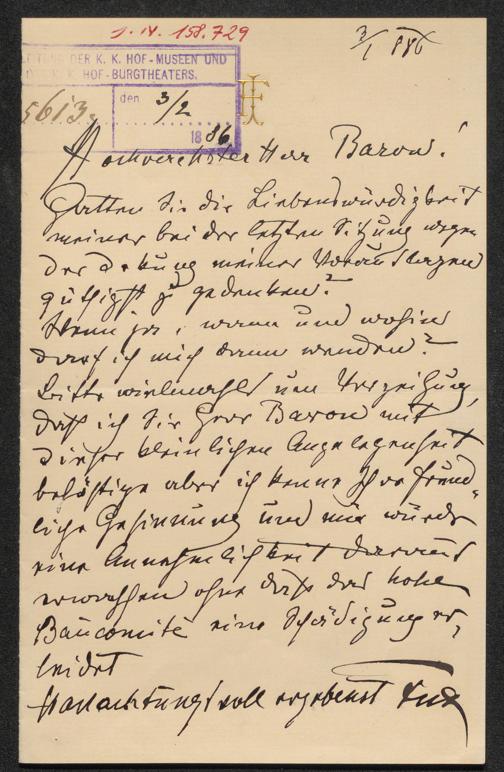 I. N. 158.729
3/1 886
LEITUNG DER K. K. HOF-MUSEEN UND
DES K. K. HOF-BURGTHEATERS.
5613.
den 3/2
1886
Hochverehrter Herr Baron!
Hatten Sie die Liebenswürdigkeit
meiner bei der letzten Sitzung wegen
der Dekung meiner Vorauslagen
gütigst zu gedenken?
Wenn ja, wann und wohin
darf ich mich dann wenden?
Bitte vielmahls um Verzeihung,
daß ich Sie Herr Baron mit
dieser kleinlichen Angelegenheit
belästige aber ich kenne Ihre freund-
liche Gesinnung und mir würde
eine Annehmlichkeit daraus
erwachsen ohne daß das hohe
Baucomité eine Schädigung er-
leidet
Hochachtungsvoll ergebenst